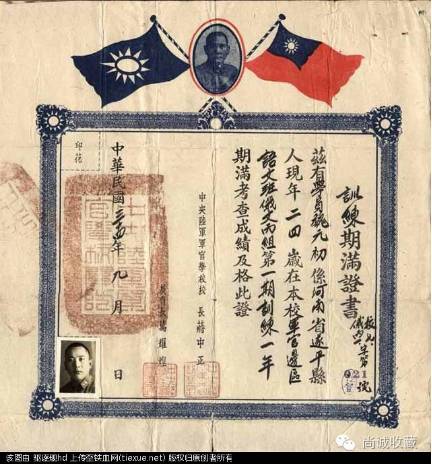 訓練期滿證書
021號
茲有學員魏元初係河南省遂平縣
人現年二四歲在本校軍官邊區
語文班俄文丙組第一期訓練一年
期滿考查成績及格此證
中央陸軍軍官學校校長蔣中正
教育長萬耀煌
中華民國三四年九月 日
印花
尚诚收藏
该图由 驱逐舰hd 上传至铁血网(tiexue.net) 版权归原创者所有